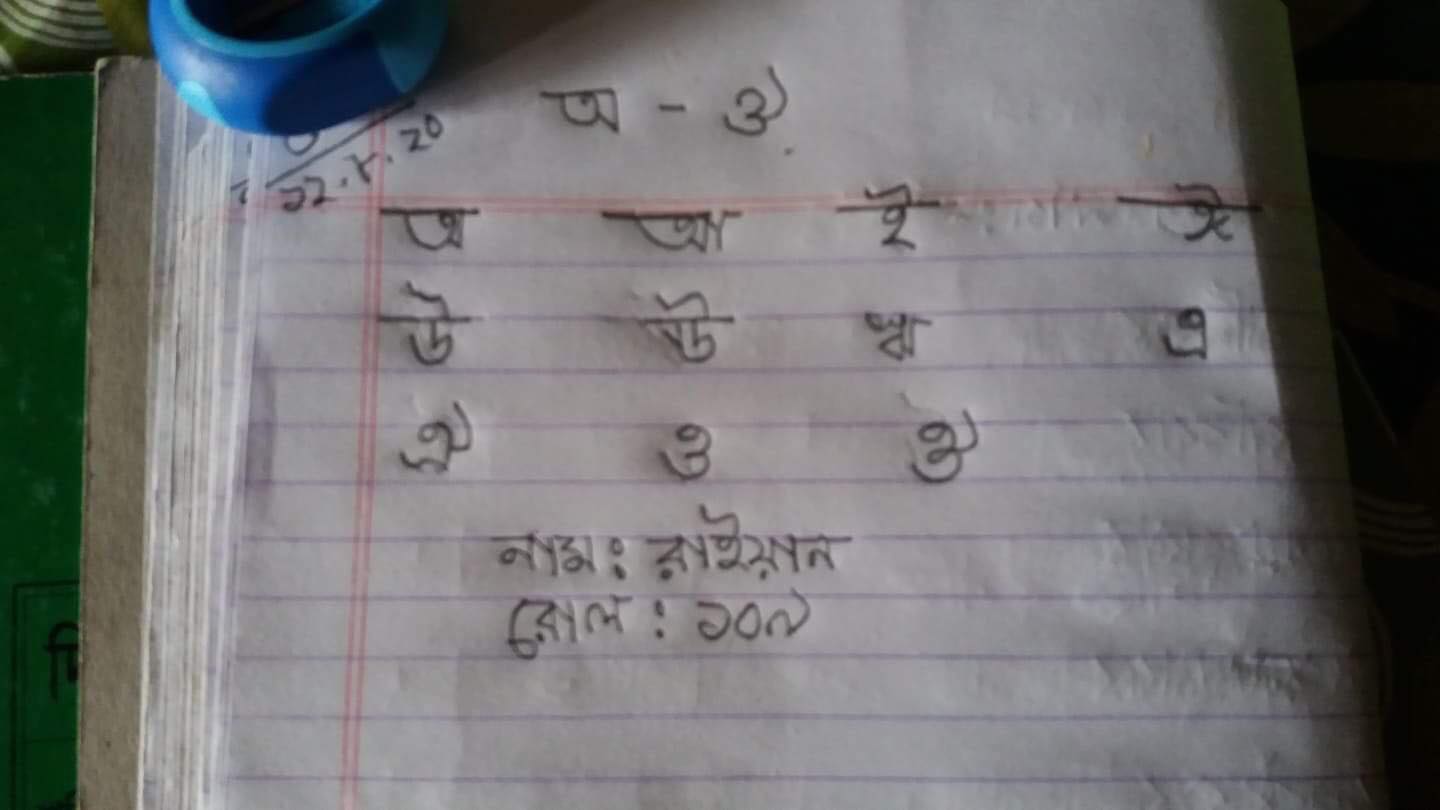 অ - ঔ
১২.৮.২০
অ আ ই ঈ
উ ঊ ঋ এ
ঐ ও ঔ
নাম: রাইয়ান
রোল: ১০৯